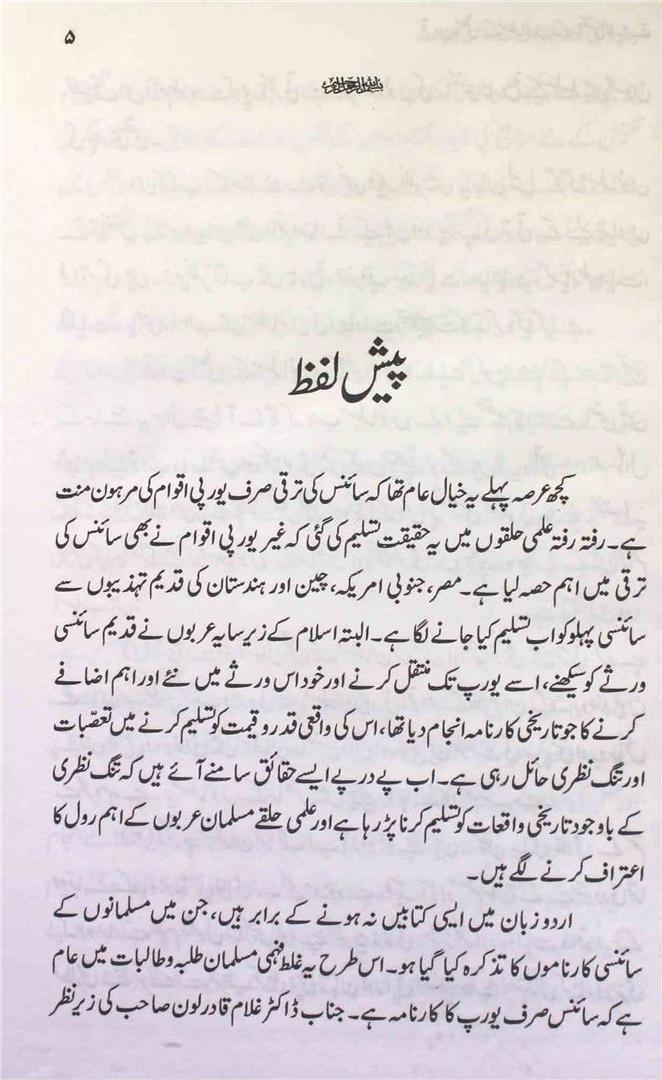 ۵
بسم اللہ الرحمن الرحیم
پیش لفظ
کچھ عرصہ پہلے یہ خیال عام تھا کہ سائنس کی ترقی صرف یورپی اقوام کی مرہون منت
ہے۔ رفتہ رفتہ علمی حلقوں میں یہ حقیقت تسلیم کی گئی کہ غیر یورپی اقوام نے بھی سائنس کی
ترقی میں اہم حصہ لیا ہے۔ مصر، جنوبی امریکہ، چین اور ہندستان کی قدیم تہذیبوں سے
سائنسی پہلو کو اب تسلیم کیا جانے لگا ہے۔ البتہ اسلام کے زیر سایہ عربوں نے قدیم سائنسی
ورثے کو سیکھنے، اسے یورپ تک منتقل کرنے اور خود اس ورثے میں نئے اور اہم اضافے
کرنے کا جو تاریخی کارنامہ انجام دیا تھا، اس کی واقعی قدر و قیمت کو تسلیم کرنے میں تعصّبات
اور تنگ نظری حائل رہی ہے۔ اب پے در پے ایسے حقائق سامنے آئے ہیں کہ تنگ نظری
کے باوجود تاریخی واقعات کو تسلیم کرنا پڑ رہا ہے اور علمی حلقے مسلمان عربوں کے اہم رول کا
اعتراف کرنے لگے ہیں۔
اردو زبان میں ایسی کتابیں نہ ہونے کے برابر ہیں، جن میں مسلمانوں کے
سائنسی کارناموں کا تذکرہ کیا گیا ہو۔ اس طرح یہ غلط فہمی مسلمان طلبہ و طالبات میں عام
ہے کہ سائنس صرف یورپ کا کارنامہ ہے۔ جناب ڈاکٹر غلام قادر لون صاحب کی زیر نظر